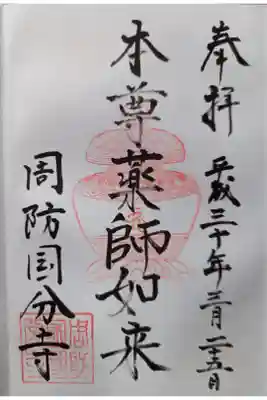 奉拝 平成三十年三月二十五日
本尊薬師如来
周防国分寺